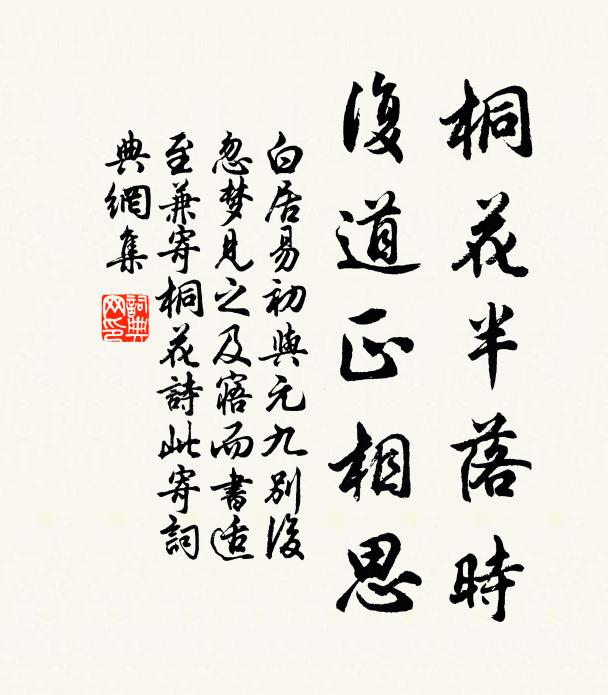 桐花半落時
復道正相思
白居易初與元九別後
忽梦見之及寤而書适
至兼寄桐花詩此寄詞
典網集
詞典网印